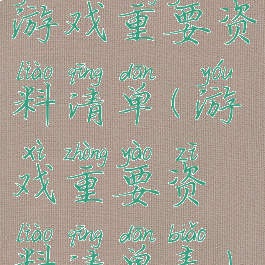 游戏重要资
liào qīng dān yóu
料清单(游
xì zhòng yào zī
戏重要资
liào qīng dān biǎo
料清单表)